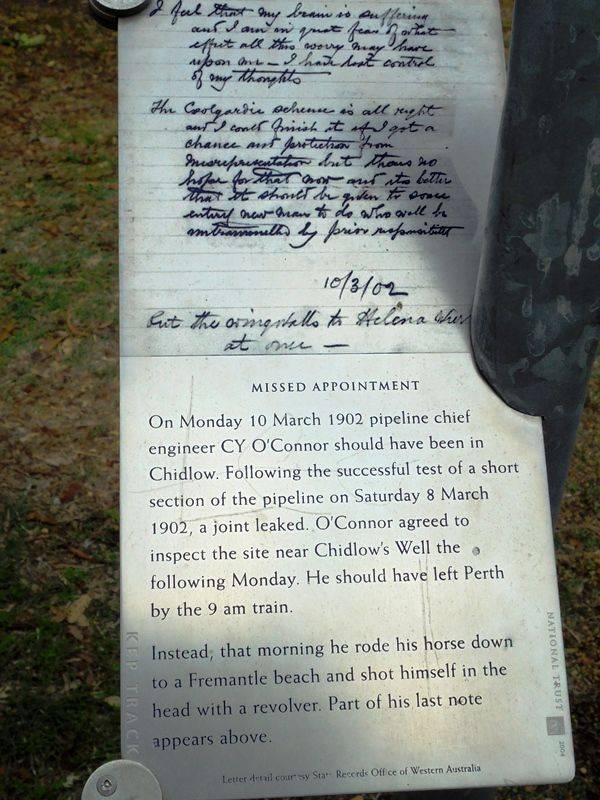 I feel that my brain is suffering
and I am in great fear of what
effect all this worry may have
upon me – I have lost control
of my thoughts
The Coolgardie scheme is all right
and I could finish it if I got a
chance and protection from
misrepresentation but there's no
hope for that now and its better
that it should be given to some
entirely new man to do who will be
untrammelled by prior responsibility
10/3/02
Put the wingwalls to Helena Weir
at once –
MISSED APPOINTMENT
On Monday 10 March 1902 pipeline chief
engineer CY O'Connor should have been in
Chidlow. Following the successful test of a short
section of the pipeline on Saturday 8 March
1902, a joint leaked. O'Connor agreed to
inspect the site near Chidlow's Well the
following Monday. He should have left Perth
by the 9 am train.
Instead, that morning he rode his horse down
to a Fremantle beach and shot himself in the
head with a revolver. Part of his last note
appears above.
Letter detail courtesy State Records Office of Western Australia
KEP TRACK
NATIONAL TRUST
2004